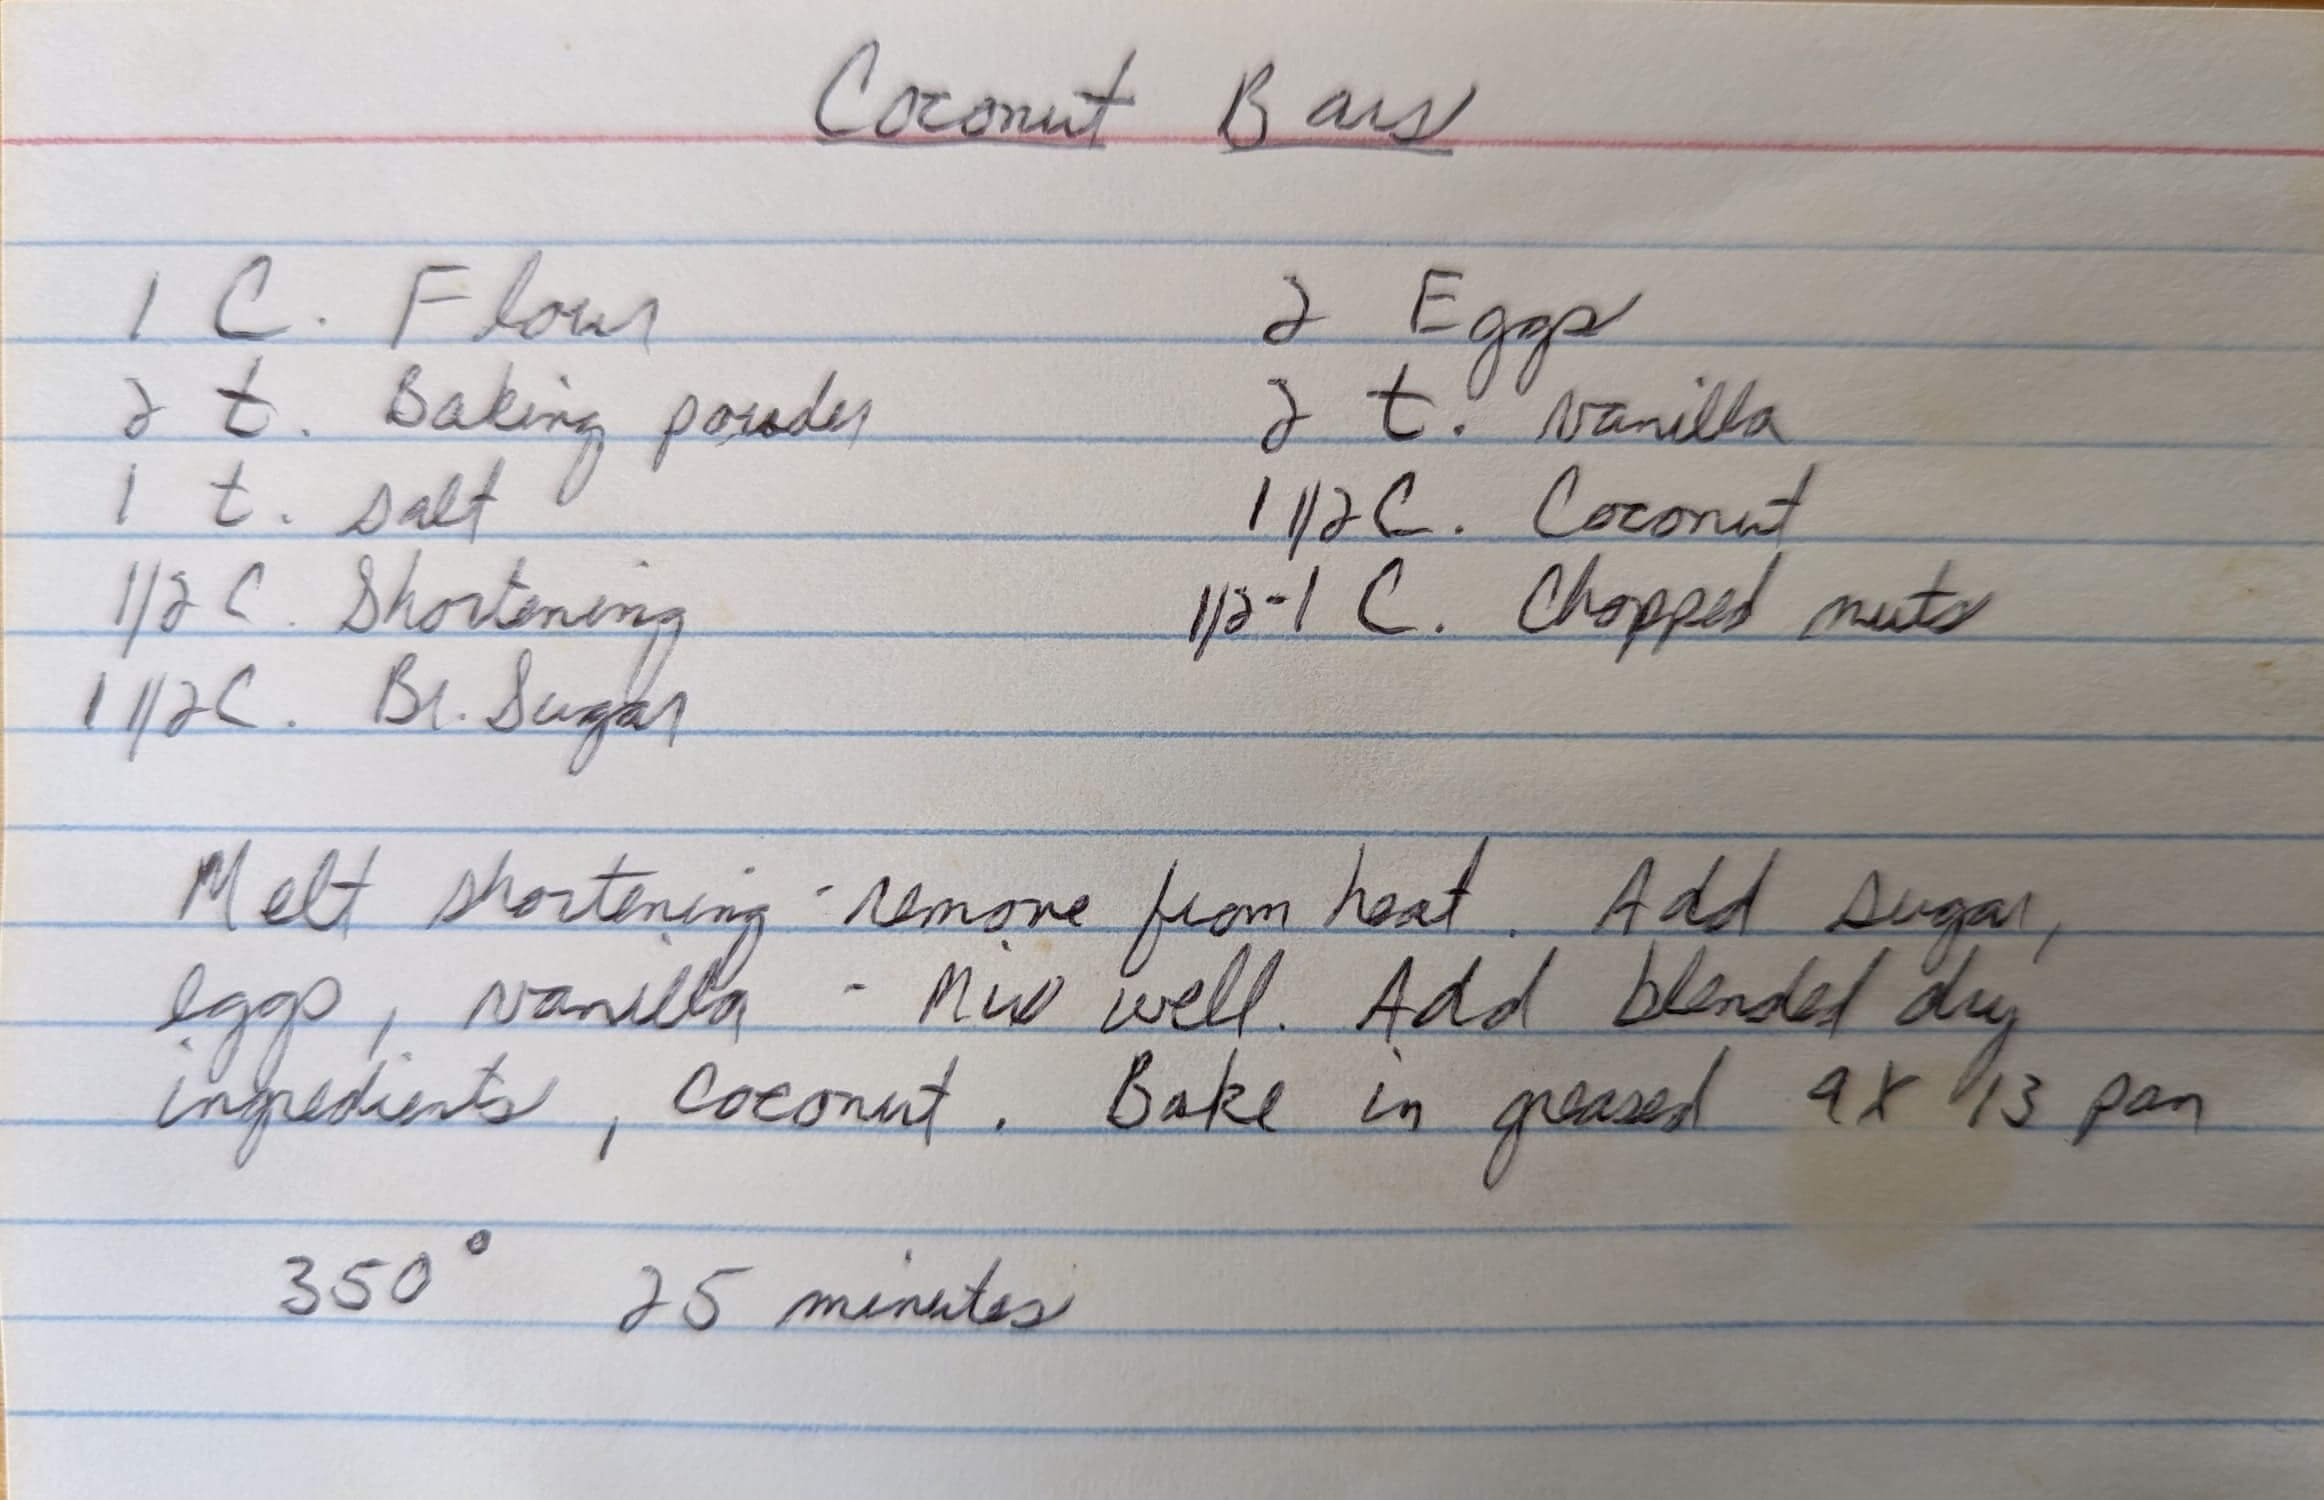 Coconut Bars
1 C. Flour
2 t. Baking powder
1 t. salt
1/2 C. Shortening
1 1/2 C. Br. Sugar
2 Eggs
2 t. vanilla
1 1/2 C. Coconut
1/2-1 C. Chopped nuts
Melt shortening - remove from heat. Add sugar,
eggs, vanilla - Mix well. Add blended dry
ingredients, coconut. Bake in greased 9X13 pan
350° 25 minutes